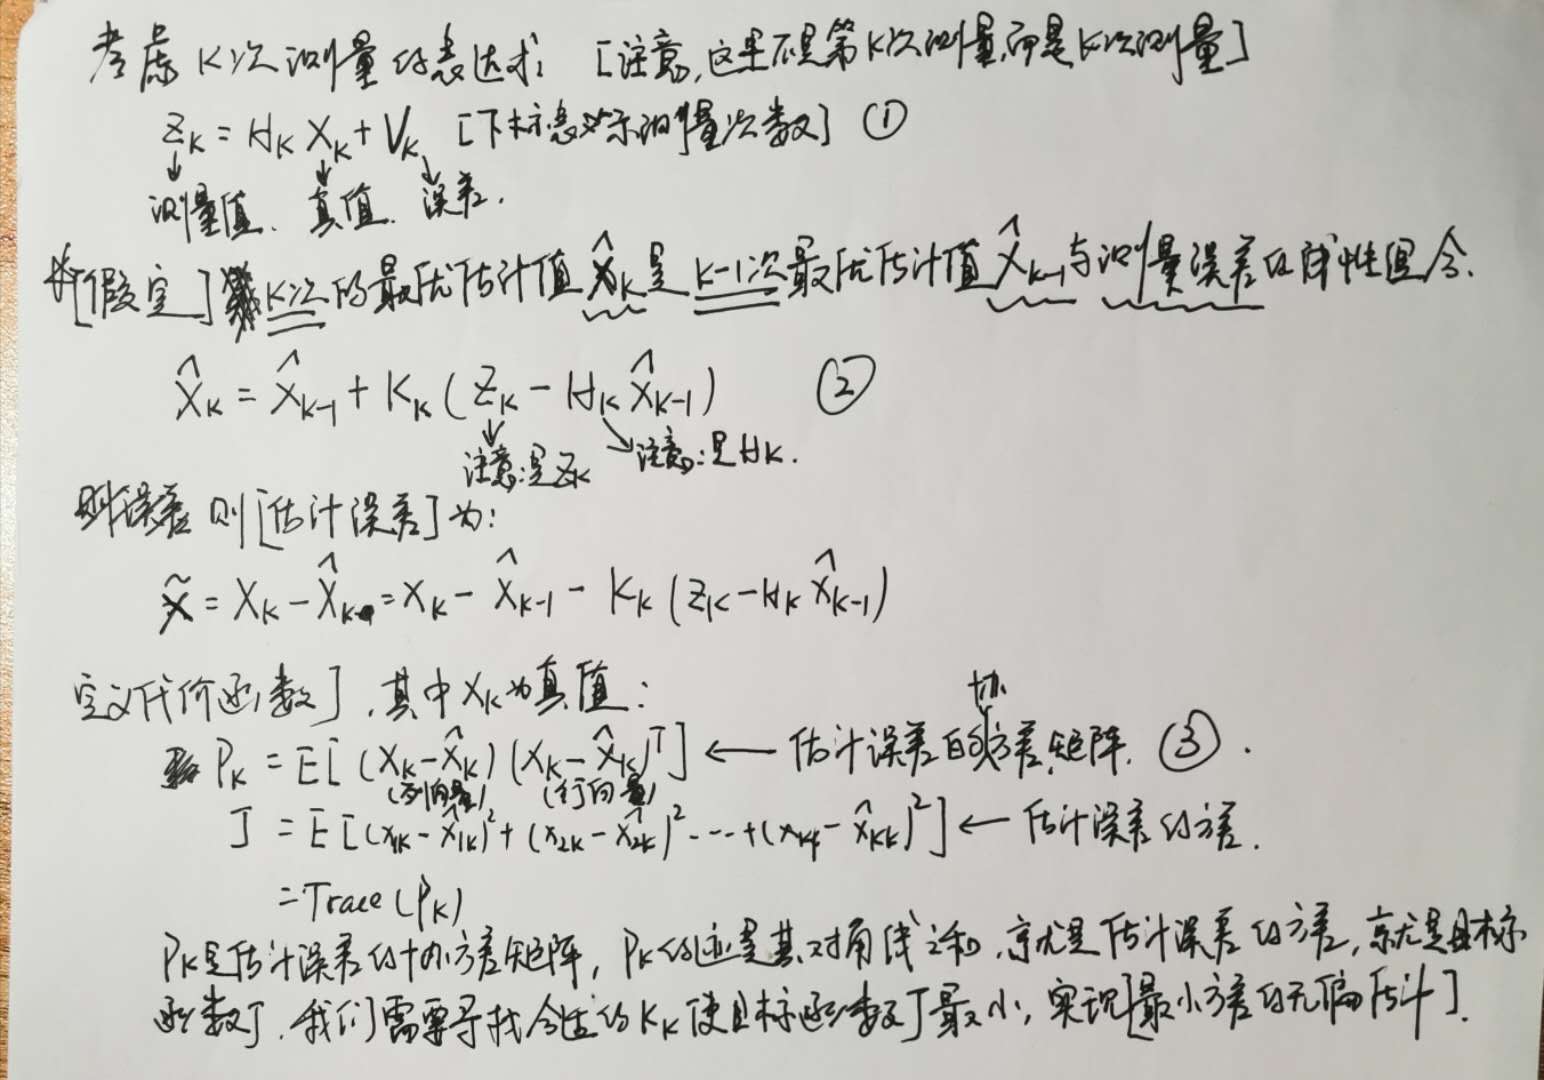 考虑K次测量的表达式 [注意,这里不是第K次测量,而是K次测量]
Z_K = H_K X_K + V_K [下标表示测量次数] ①
↓ ↓ ↓
测量值. 真值. 误差.
[假定] K次的最优估计值 X̂_K 是 K-1次最优估计值 X̂_{K-1} 与测量误差的线性组合.
X̂_K = X̂_{K-1} + K_K ( Z_K - H_K X̂_{K-1} ) ②
注意:是Z_K 注意:是H_K.
则[估计误差]为:
X̃ = X_K - X̂_K = X_K - X̂_{K-1} - K_K ( Z_K - H_K X̂_{K-1} )
定义代价函数], 其中 X_K 为真值:
P_K = E[ (X_K - X̂_K) (X_K - X̂_K)^T ] ← 估计误差的协方差矩阵. ③.
(列向量) (行向量)
J = E[ (x_{1K} - x̂_{1K})² + (x_{2K} - x̂_{2K})² ---- + (x_{KK} - x̂_{KK})² ] ← 估计误差的方差.
= Trace (P_K)
P_K是估计误差的协方差矩阵, P_K的迹是其对角线之和, 亦就是估计误差的方差, 亦就是目标
函数J. 我们需要寻找合适的K_K使目标函数J最小, 实现[最小方差的无偏估计].